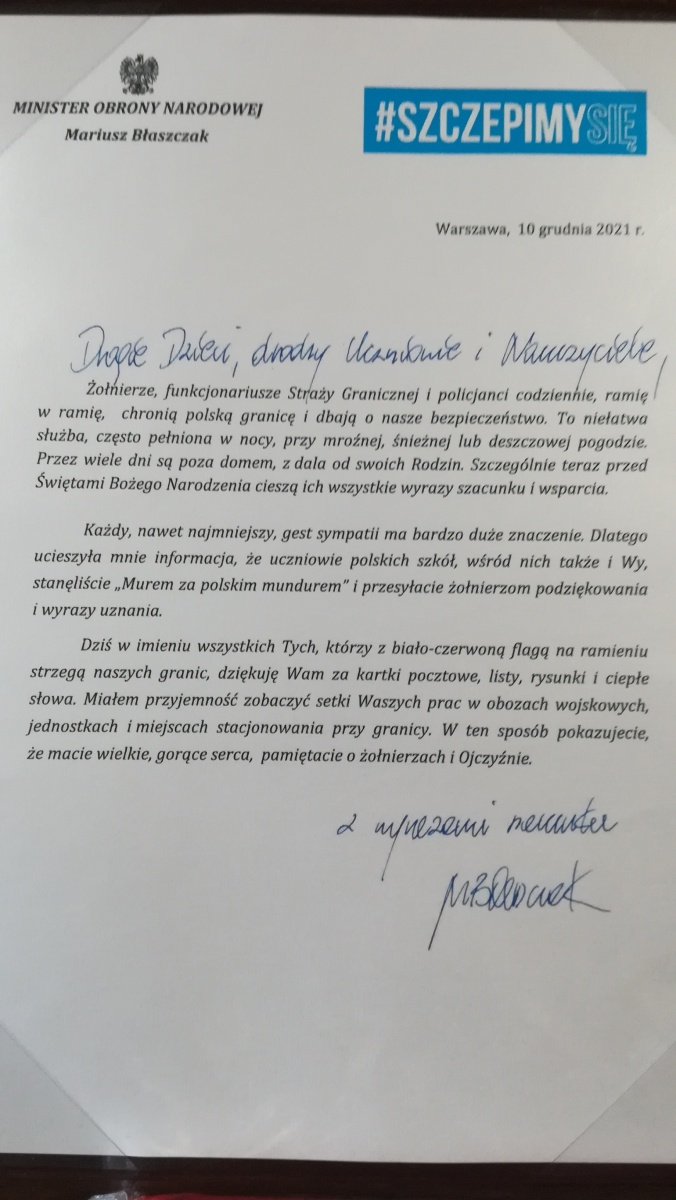 MINISTER OBRONY NARODOWEJ
Mariusz Błaszczak
#SZCZEPIMYSIĘ
Warszawa, 10 grudnia 2021 r.
Drogie Dzieci, drodzy Uczniowie i Nauczyciele,
Żołnierze, funkcjonariusze Straży Granicznej i policjanci codziennie, ramię
w ramię, chronią polską granicę i dbają o nasze bezpieczeństwo. To niełatwa
służba, często pełniona w nocy, przy mroźnej, śnieżnej lub deszczowej pogodzie.
Przez wiele dni są poza domem, z dala od swoich Rodzin. Szczególnie teraz przed
Świętami Bożego Narodzenia cieszą ich wszystkie wyrazy szacunku i wsparcia.
Każdy, nawet najmniejszy, gest sympatii ma bardzo duże znaczenie. Dlatego
ucieszyła mnie informacja, że uczniowie polskich szkół, wśród nich także i Wy,
stanęliście „Murem za polskim mundurem" i przesyłacie żołnierzom podziękowania
i wyrazy uznania.
Dziś w imieniu wszystkich Tych, którzy z biało-czerwoną flagą na ramieniu
strzegą naszych granic, dziękuję Wam za kartki pocztowe, listy, rysunki i ciepłe
słowa. Miałem przyjemność zobaczyć setki Waszych prac w obozach wojskowych,
jednostkach i miejscach stacjonowania przy granicy. W ten sposób pokazujecie,
że macie wielkie, gorące serca, pamiętacie o żołnierzach i Ojczyźnie.
z wyrazami szacunku
MBłaszczak